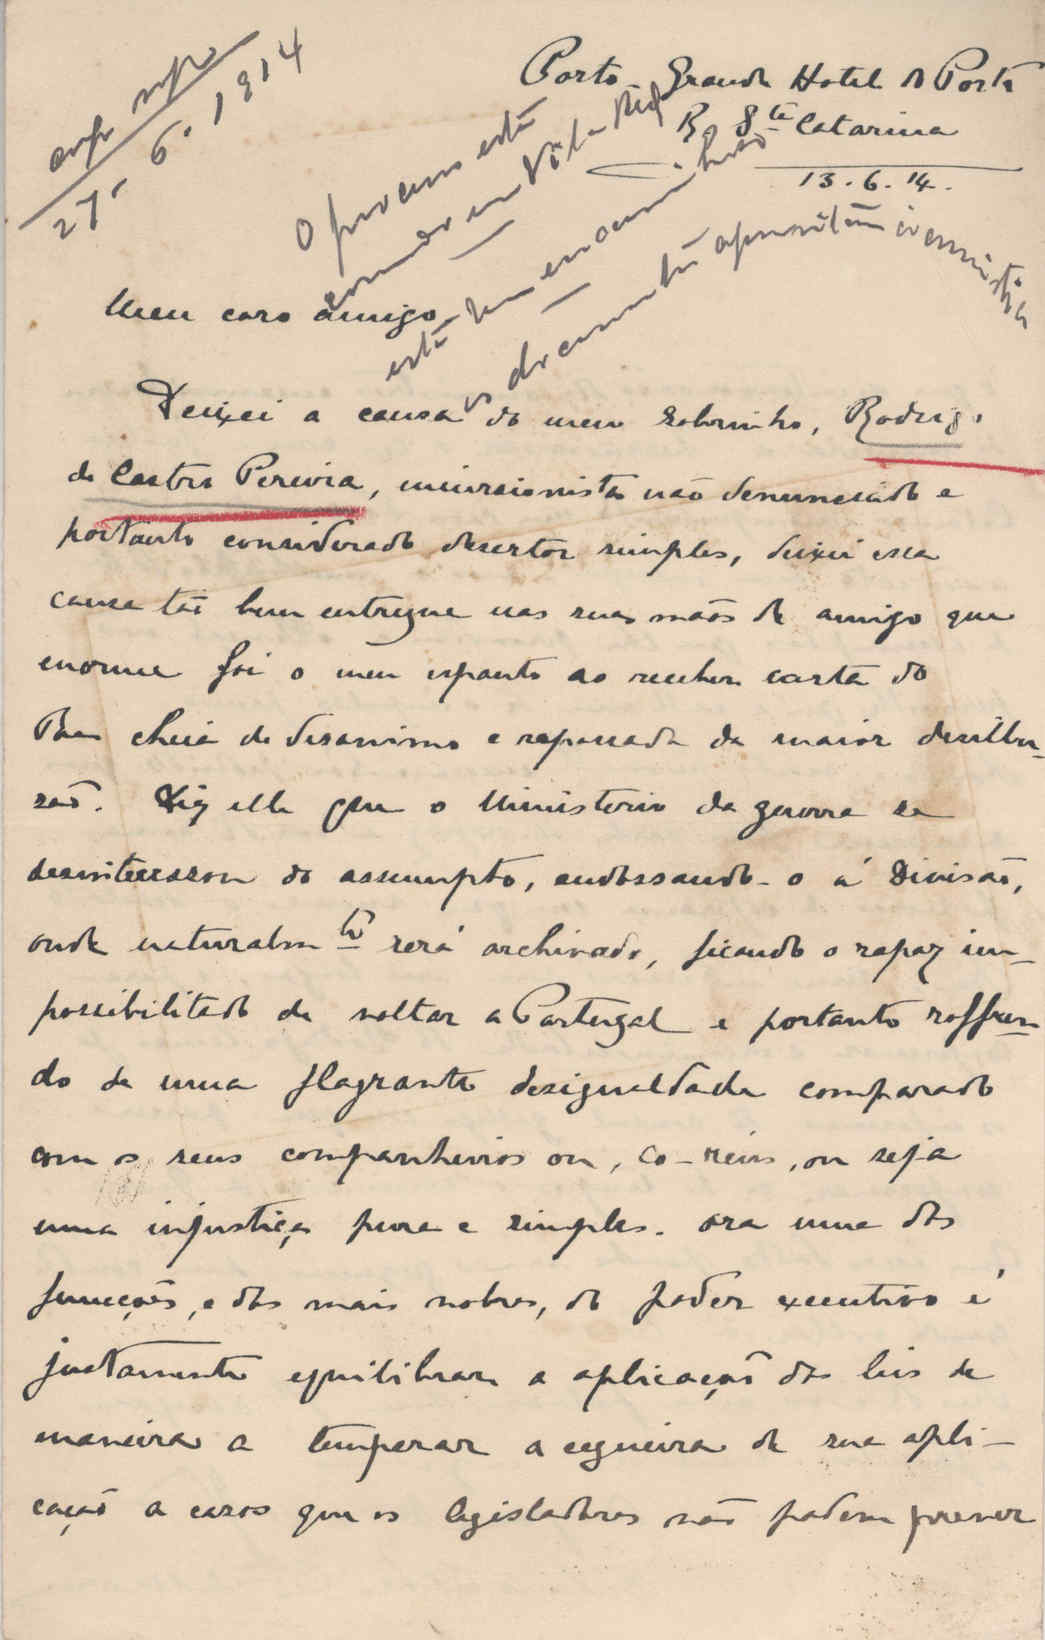 Porto – Grande Hotel do Porto
R. Sta Catarina
13.6.14.
27.6.1914
O processo está
está
documentos
Meu caro amigo
Deixei a causa do meu sobrinho, Rodrigo
de Castro Pereira, incursionista não denunciado e
portanto considerado desertor simples, deixei essa
causa tão bem entregue nas suas mãos de amigo que
enorme foi o meu espanto ao receber carta do
cheia de desanimo e repassada da maior desillu-
são. Diz elle que o Ministerio da guerra se
desinteressou do assumpto, endossando-o á Divisão,
onde naturalmte será archivado, ficando o rapaz im-
possibilitado de voltar a Portugal e portanto soffren-
do de uma flagrante desigualdade comparado
com os seus companheiros ou, co-reus, ou seja
uma injustiça pura e simples. Ora uma das
funcções, e das mais nobres, do poder executivo é
justamente equilibrar a aplicação das leis de
maneira a temperar a cegueira de sua apli-
cação a casos que os legisladores não podem prever